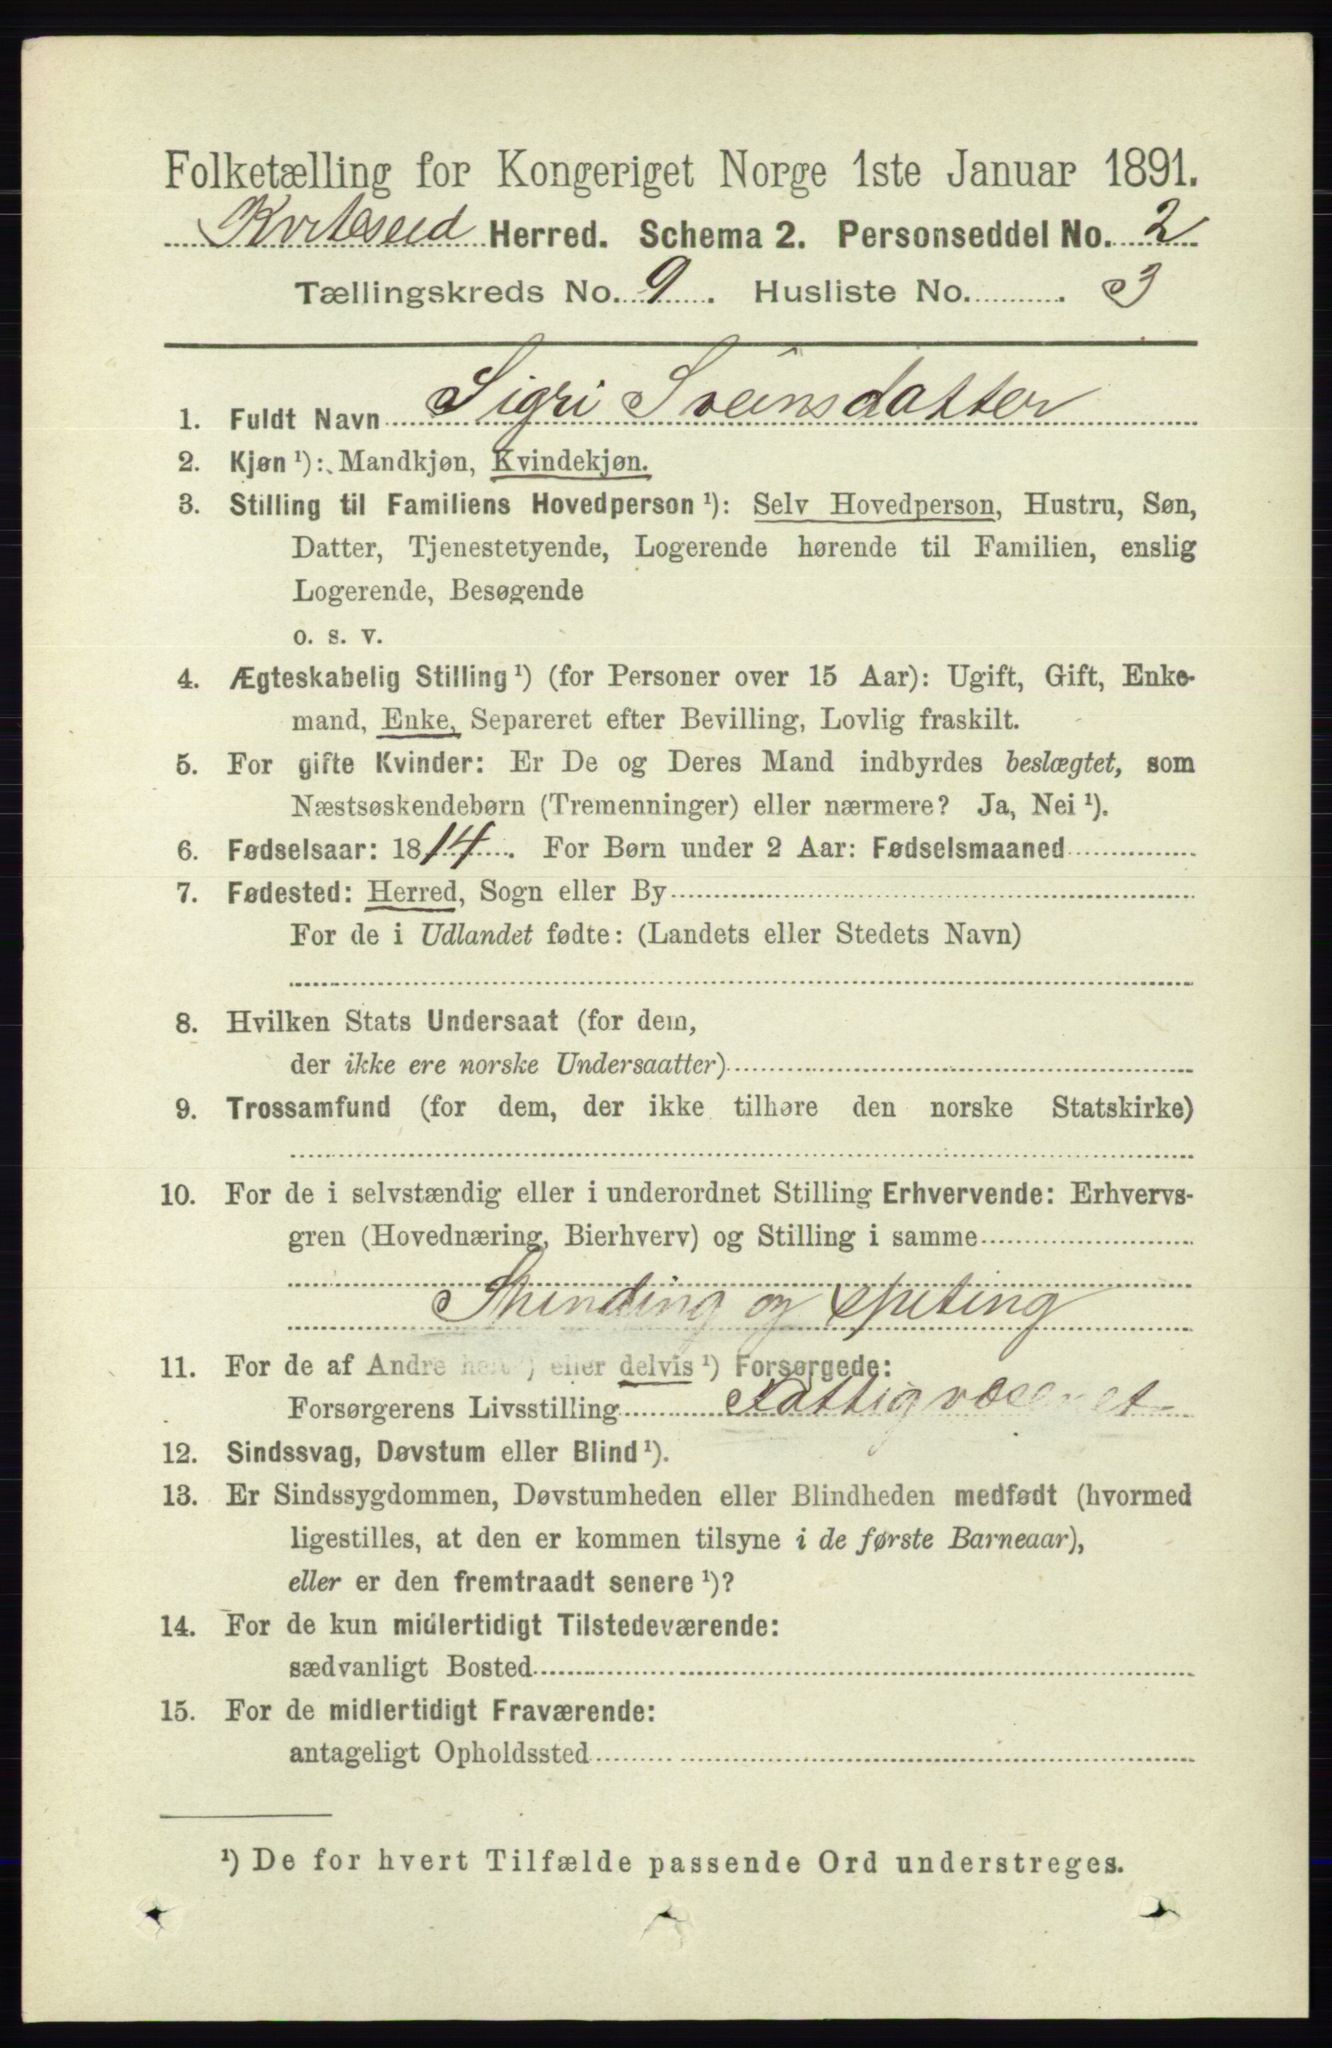 Folketælling for Kongeriget Norge 1ste Januar 1891.
Kviteseid Herred. Schema 2. Personseddel No. 2
Tællingskreds No. 9. Husliste No. 3
1. Fuldt Navn Sigri Sveinsdatter
2. Kjøn ¹): Mandkjøn, Kvindekjøn.
3. Stilling til Familiens Hovedperson ¹): Selv Hovedperson, Hustru, Søn,
Datter, Tjenestetyende, Logerende hørende til Familien, enslig
Logerende, Besøgende
o. s. v.
4. Ægteskabelig Stilling ¹) (for Personer over 15 Aar): Ugift, Gift, Enke-
mand, Enke, Separeret efter Bevilling, Lovlig fraskilt.
5. For gifte Kvinder: Er De og Deres Mand indbyrdes beslægtet, som
Næstsøskendebørn (Tremenninger) eller nærmere? Ja, Nei ¹).
6. Fødselsaar: 1814. For Børn under 2 Aar: Fødselsmaaned
7. Fødested: Herred, Sogn eller By
For de i Udlandet fødte: (Landets eller Stedets Navn)
8. Hvilken Stats Undersaat (for dem,
der ikke ere norske Undersaatter)
9. Trossamfund (for dem, der ikke tilhøre den norske Statskirke)
10. For de i selvstændig eller i underordnet Stilling Erhvervende: Erhvervs-
gren (Hovednæring, Bierhverv) og Stilling i samme
og spiting
11. For de af Andre helt ¹) eller delvis ¹) Forsørgede:
Forsørgerens Livsstilling Fattigvæsenet
12. Sindssvag, Døvstum eller Blind ¹).
13. Er Sindssygdommen, Døvstumheden eller Blindheden medfødt (hvormed
ligestilles, at den er kommen tilsyne i de første Barneaar),
eller er den fremtraadt senere ¹)?
14. For de kun midlertidigt Tilstedeværende:
sædvanligt Bosted
15. For de midlertidigt Fraværende:
antageligt Opholdssted
¹) De for hvert Tilfælde passende Ord understreges.